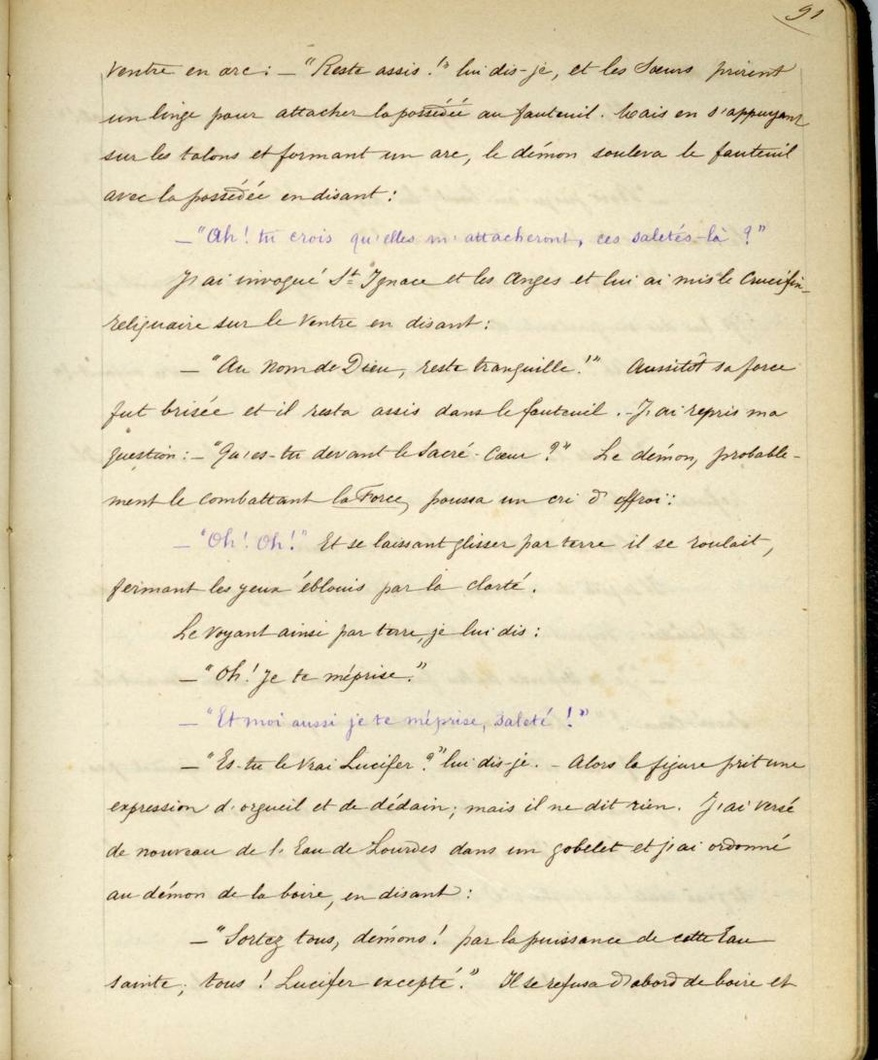 91
ventre en arc: — "Reste assis!" lui dis-je, et les Sœurs prirent
un linge pour attacher la possédée au fauteuil. Mais en s'appuyant
sur les talons et formant un arc, le démon souleva le fauteuil
avec la possédée en disant:
— "Ah! tu crois qu'elles m'attacheront, ces saletés-là ?"
J'ai invoqué St Ignace et les Anges et lui ai mis le Crucifix-
reliquaire sur le ventre en disant:
— "Au Nom de Dieu, reste tranquille!" Aussitôt sa force
fut brisée et il resta assis dans le fauteuil. - J'ai repris ma
question: - "Qu'es-tu devant le Sacré-Cœur ?" Le démon, probable-
ment le combattant la Force, poussa un cri d'effroi:
— "Oh! Oh!" Et se laissant glisser par terre il se roulait,
fermant les yeux éblouis par la clarté.
Le voyant ainsi par terre, je lui dis:
— "Oh! Je te méprise."
— "Et moi aussi je te méprise, Saleté !"
— "Es-tu le vrai Lucifer ?" lui dis-je. - Alors la figure prit une
expression d'orgueil et de dédain; mais il ne dit rien. J'ai versé
de nouveau de l'Eau de Lourdes dans un gobelet et j'ai ordonné
au démon de la boire, en disant:
— "Sortez tous, démons! par la puissance de cette Eau
sainte; tous! Lucifer excepté." Il se refusa d'abord de boire et